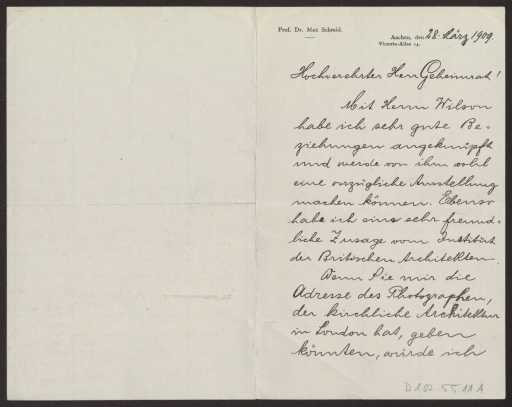 Prof. Dr. Max Schmid.
Aachen, den 28. März 1909.
Vincenz-Allee 14.
Hochverehrter Herr Geheimrat!
Mit Herrn Wilson
habe ich sehr gute Be-
ziehungen angeknüpft
und werde von ihm wohl
eine vorzügliche Ausstellung
machen können. Ebenso
habe ich eine sehr freund-
liche Zusage vom Institut
der Britischen Architekten.
Wenn Sie mir die
Adresse des Photographen,
der kirchliche Architektur
in London hat, geben
könnten, würde ich